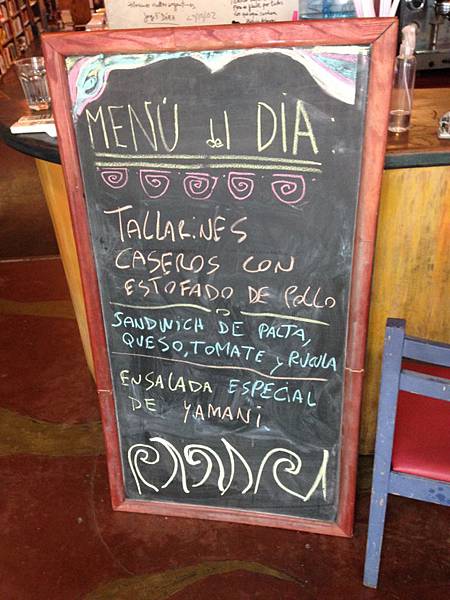 MENÚ del DÍA
TALLARINES
CASEROS CON
ESTOFADO DE POLLO
SANDWICH DE PALTA,
QUESO, TOMATE y RUCULA
ENSALADA ESPECIAL
DE YAMANI